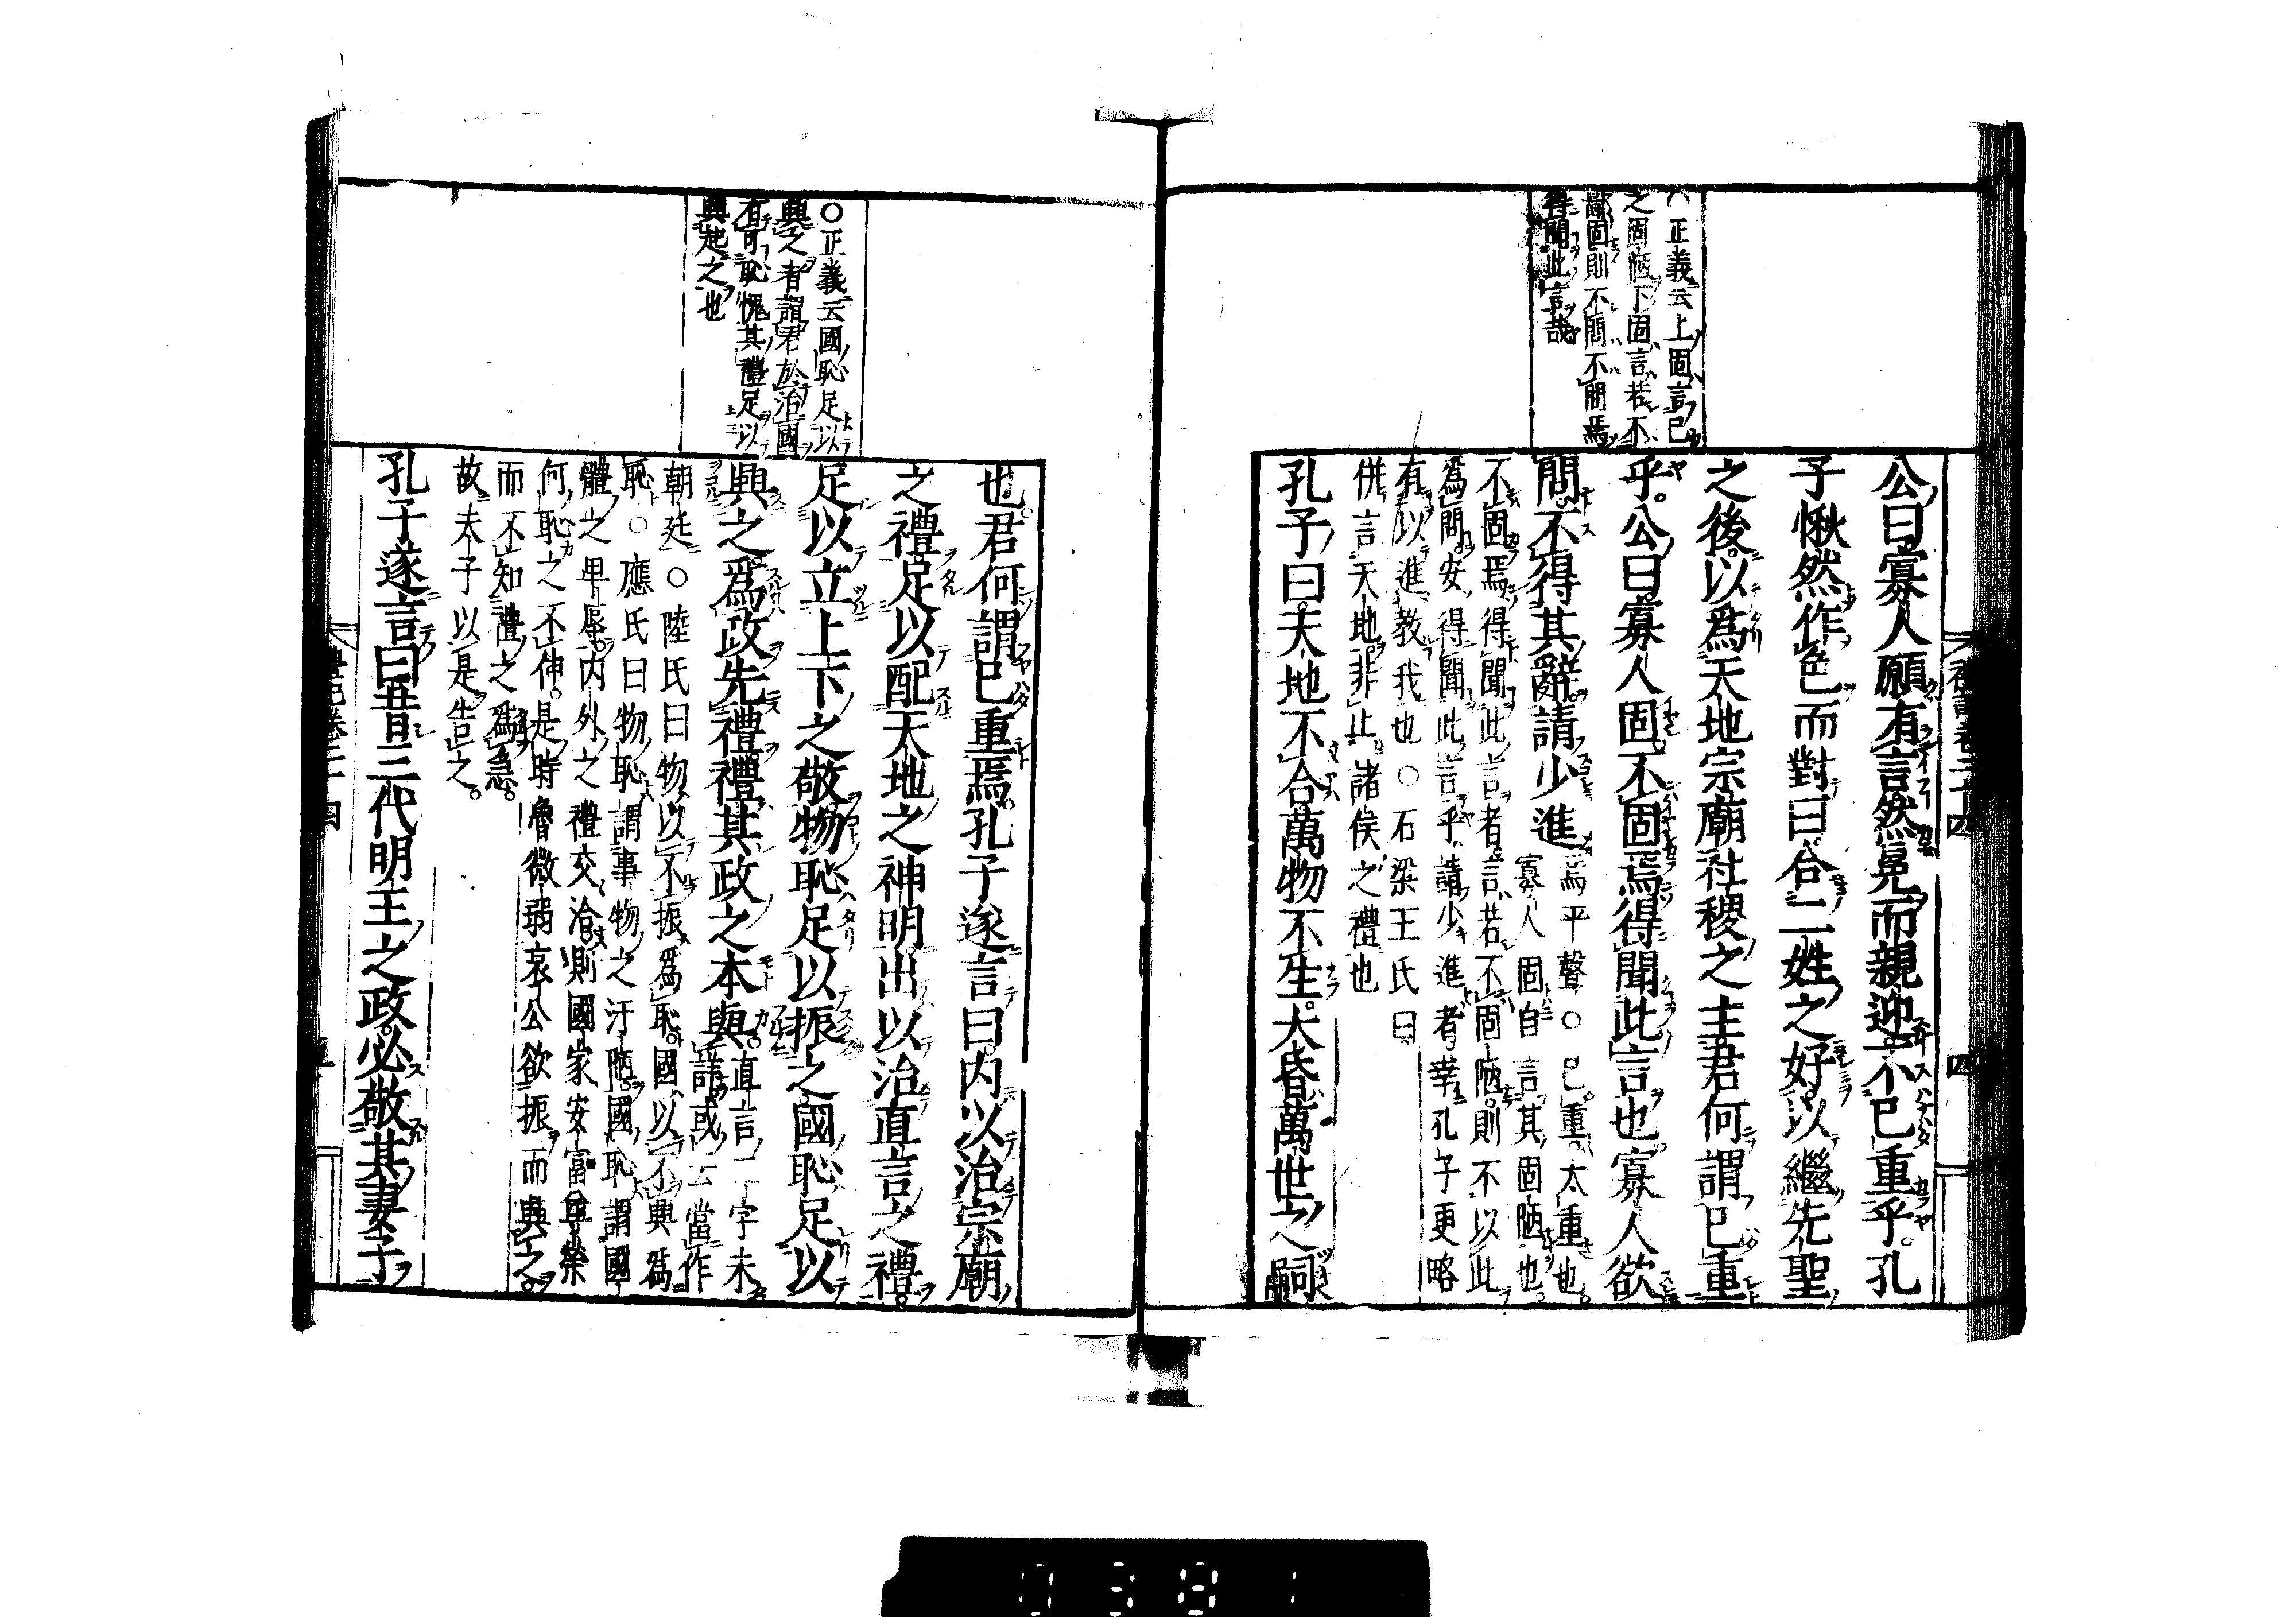 禮記卷二十四
四
○正義云上固言己
之固陋下固言若不
鄙固則不問不問焉
得聞此言哉
公曰寡人願有言然冕而親迎不已重乎。孔
子愀然作色而對曰。合二姓之好。以繼先聖
之後。以爲天地宗廟社稷之主。君何謂已重
乎。公曰寡人固。不固焉得聞此言也寡人欲
問。不得其辭。請少進
焉平聲○已重。太重也。
寡人固自言其固陋也。
不固焉得聞此言者。言若不固陋。則不以此
爲問。安得聞此言乎。請少進者。幸孔子更略
有以進教我也○石梁王氏曰
併言天地。非止諸侯之禮也
孔子曰。天地不合。萬物不生。大昏萬世之嗣
○正義云國恥足以
興之者謂君於治國
有可恥愧其禮足以
興起之也
也。君何謂已重焉。孔子遂言曰。内以治宗廟
之禮。足以配天地之神明。出以治直言之禮。
足以立上下之敬。物恥足以振之。國恥足以
興之。爲政先禮。禮其政之本與
直言二字未
詳。或云當作
朝廷○陸氏曰物以不振爲恥。國以不興爲
恥。○應氏曰物恥謂事物之汙陋。國恥謂國
體之卑辱。内外之禮交洽。則國家安富尊榮
何恥之不伸。是時魯微弱哀公欲振而興之。
而不知禮之爲急。
故夫子以是告之。
孔子遂言曰昔三代明王之政。必敬其妻子
禮記卷二十四